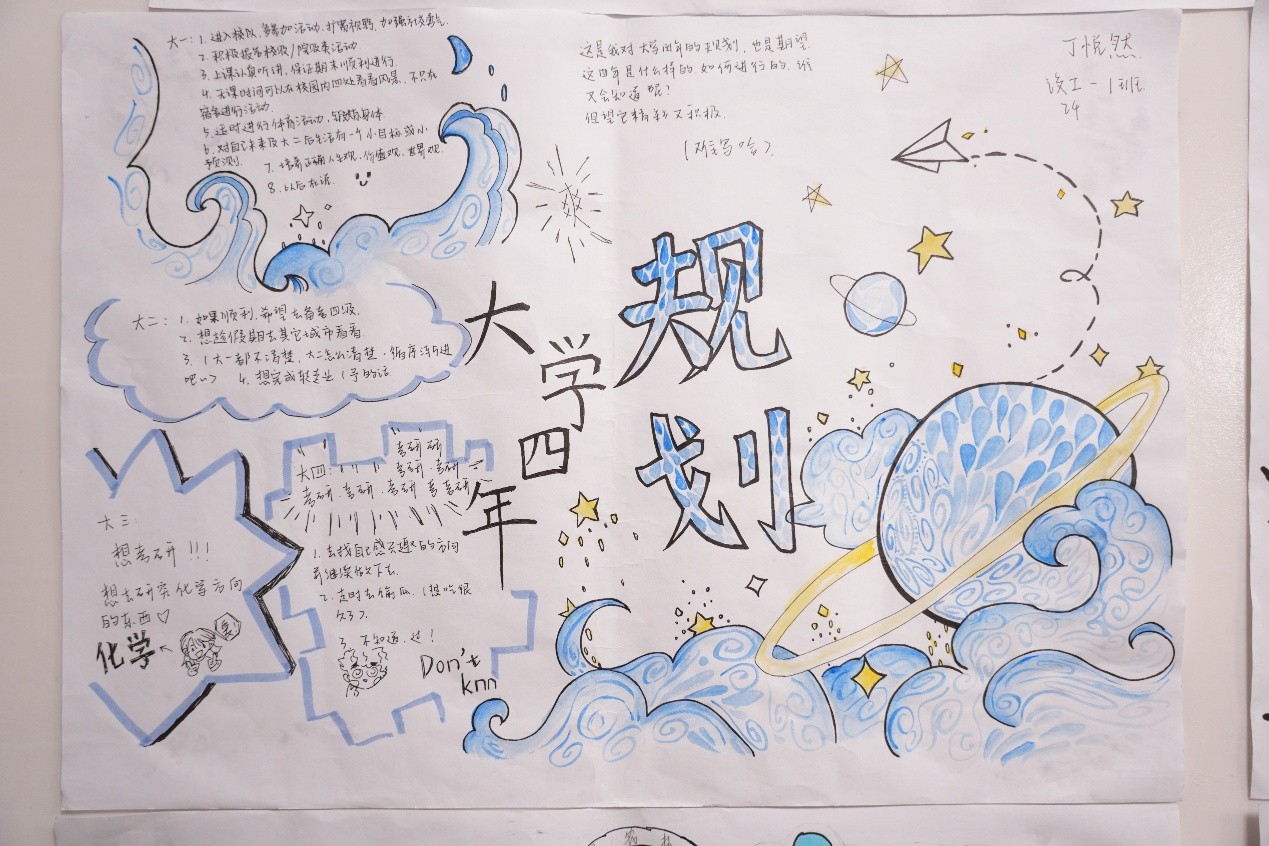 大一: 1. 进入校队, 多参加活动, 扩宽视野, 加强
2. 积极报名校级/院级类活动
3. 上课认真听讲, 保证期末顺利进行
4. 无课时间可以在校园内四处看看风景, 不只在
宿舍进行活动.
5. 适时进行体育活动, 锻炼身体
6. 对自己未来及大二后生活有一个小目标或小
预测. 7. 培养正确人生观, 价值观, 世界观.
8. 以后和谐.
这是我对大学四年的规划, 也是期望.
这四年是什么样的, 如何进行的, 谁
又会知道呢!
但望它精彩又积极.
(难写哈)
丁悦然
设工-1班
24
爽
大学四年
规划
大二: 1. 如果顺利, 希望去备考四级.
2. 想趁假期去其它城市看看
3. (大一都不清楚, 大二怎么清楚, 循序渐进
吧~) 4. 想完成转专业(予的话
大三:
想考研!!!
想去研究化学方向
的东西♡
化学
大四:
考研 研
考研·考研
考研·考研·考研 考考研
1. 去找自己感兴趣的方向
并继续做下去.
2. 走时去偷瓜. (想吃很
久了).
3. 不知道, 过!
Don't
knn